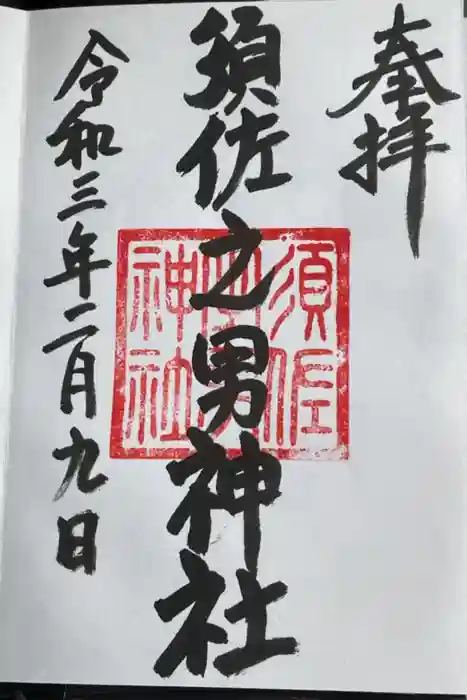 奉拝
須佐之男神社
令和三年二月九日
須佐
之男
神社